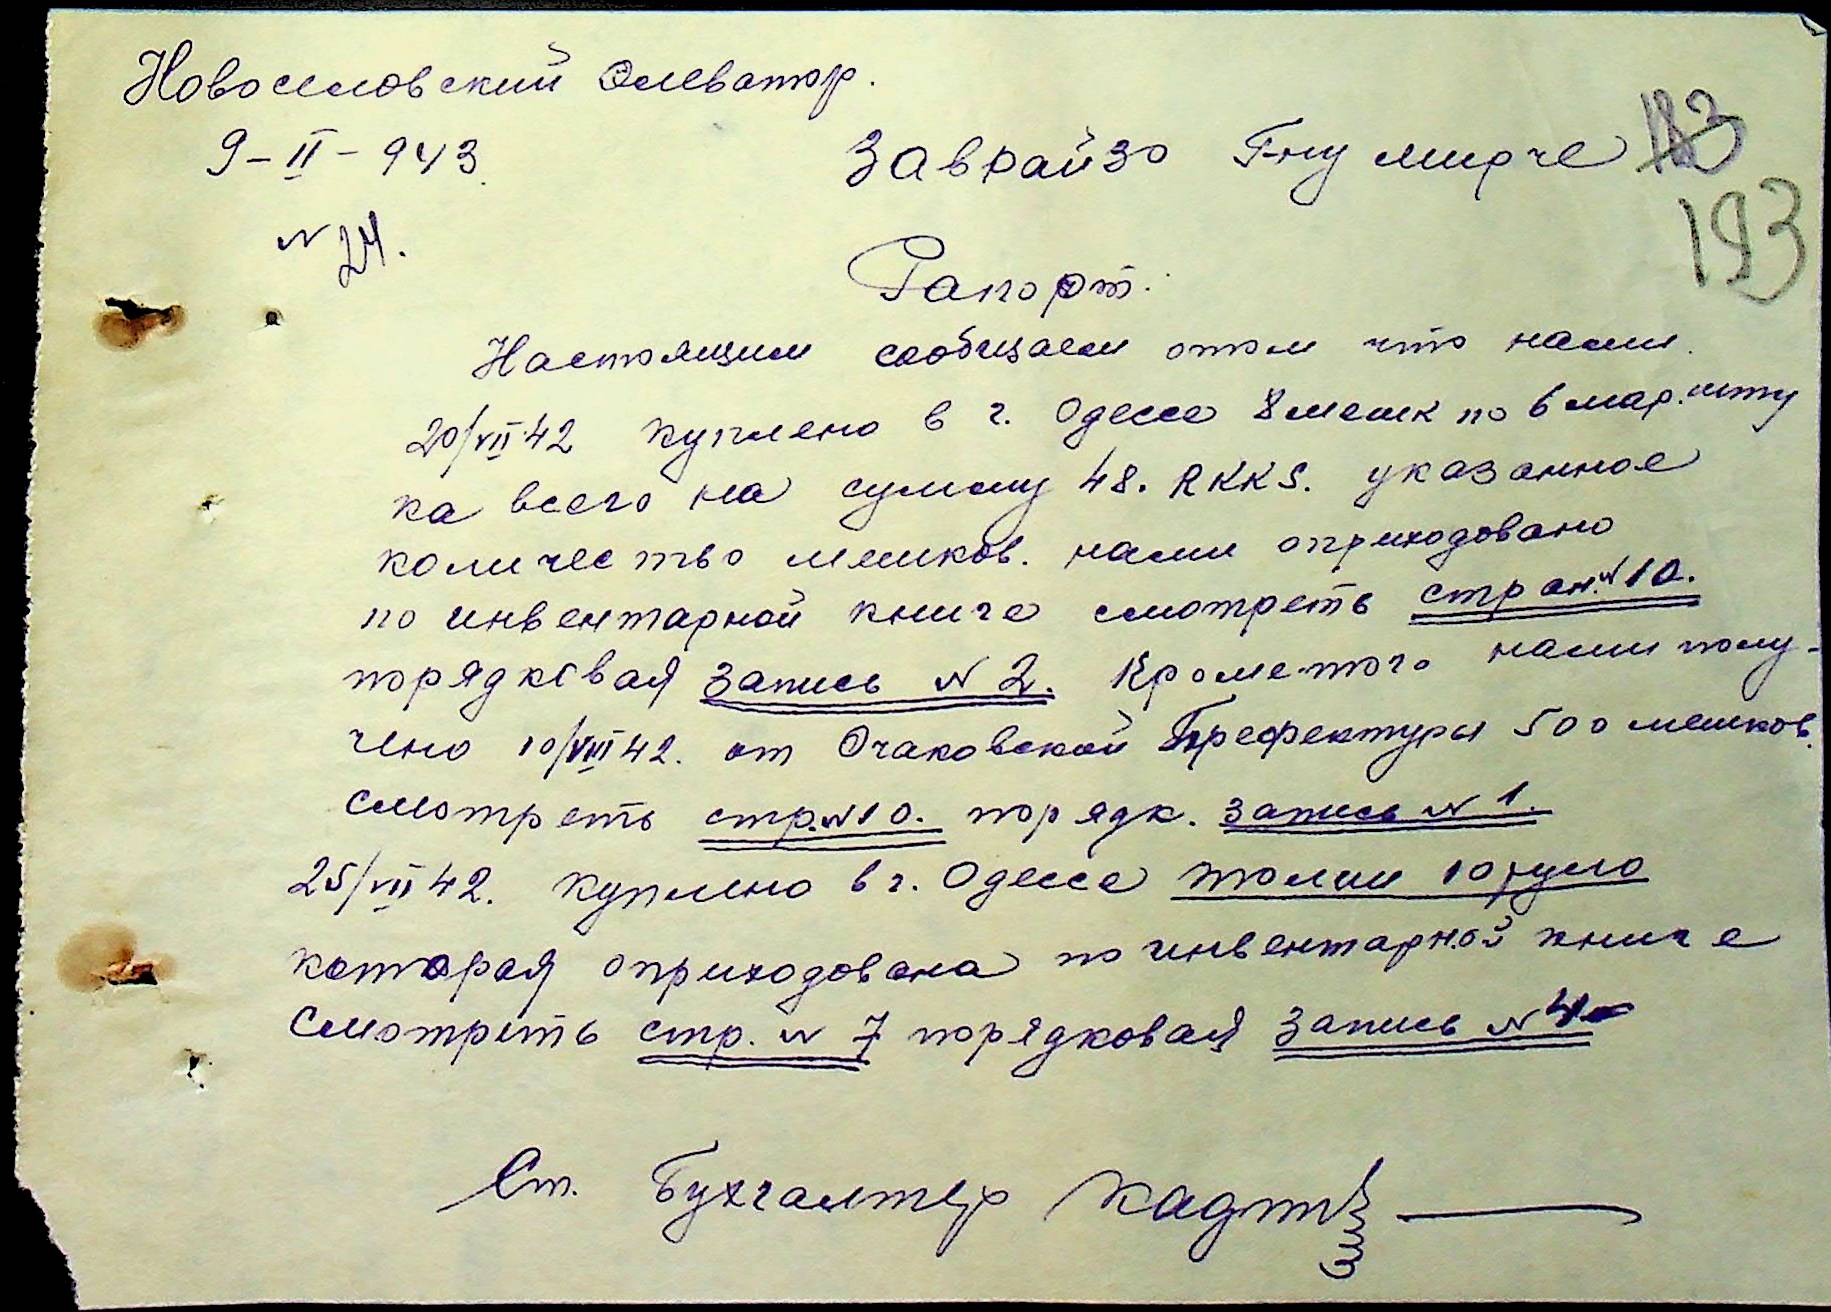 Новоселовский Элеватор.
183
9-II-943.
Заврайзо Г-ну мирче
193
N 24.
Рапорт.
Настоящим сообщаем отом что нами.
20/VII 42 куплено в г. Одессе 8 мешк по 6 мар. шту
ка всего на сумму 48. RKKS. указанное
количество мешков. нами оприходовано
по инвентарной книге смотреть стран. N 10.
порядковая запись N 2. Кроме того нами полу-
чено 10/VIII 42. от Очаковской Префектуры 500 мешков.
смотреть стр. N 10. порядк. запись N 1.
25/VII 42. куплено в г. Одессе толии 10 руло
которая оприходована по инвентарной книге
Смотреть стр. N 7 порядковая запись N 4
Ст. Бухгалтер